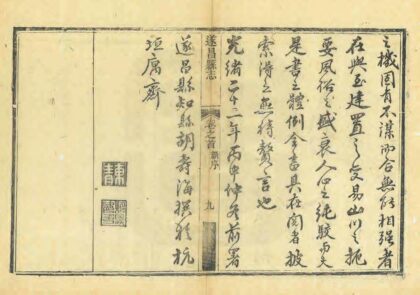 之機固有不謀而合無能相強者
在與至建置之変易山川之扼
要風俗之盛衰人心之純駁而夫
是書之體例全書具在閱者披
索滑之無待贅言也
光緒二十二年丙申仲冬前署
遂昌縣志
卷之首 新序
九
遂昌縣知縣胡壽海撰於杭
垣寓齋